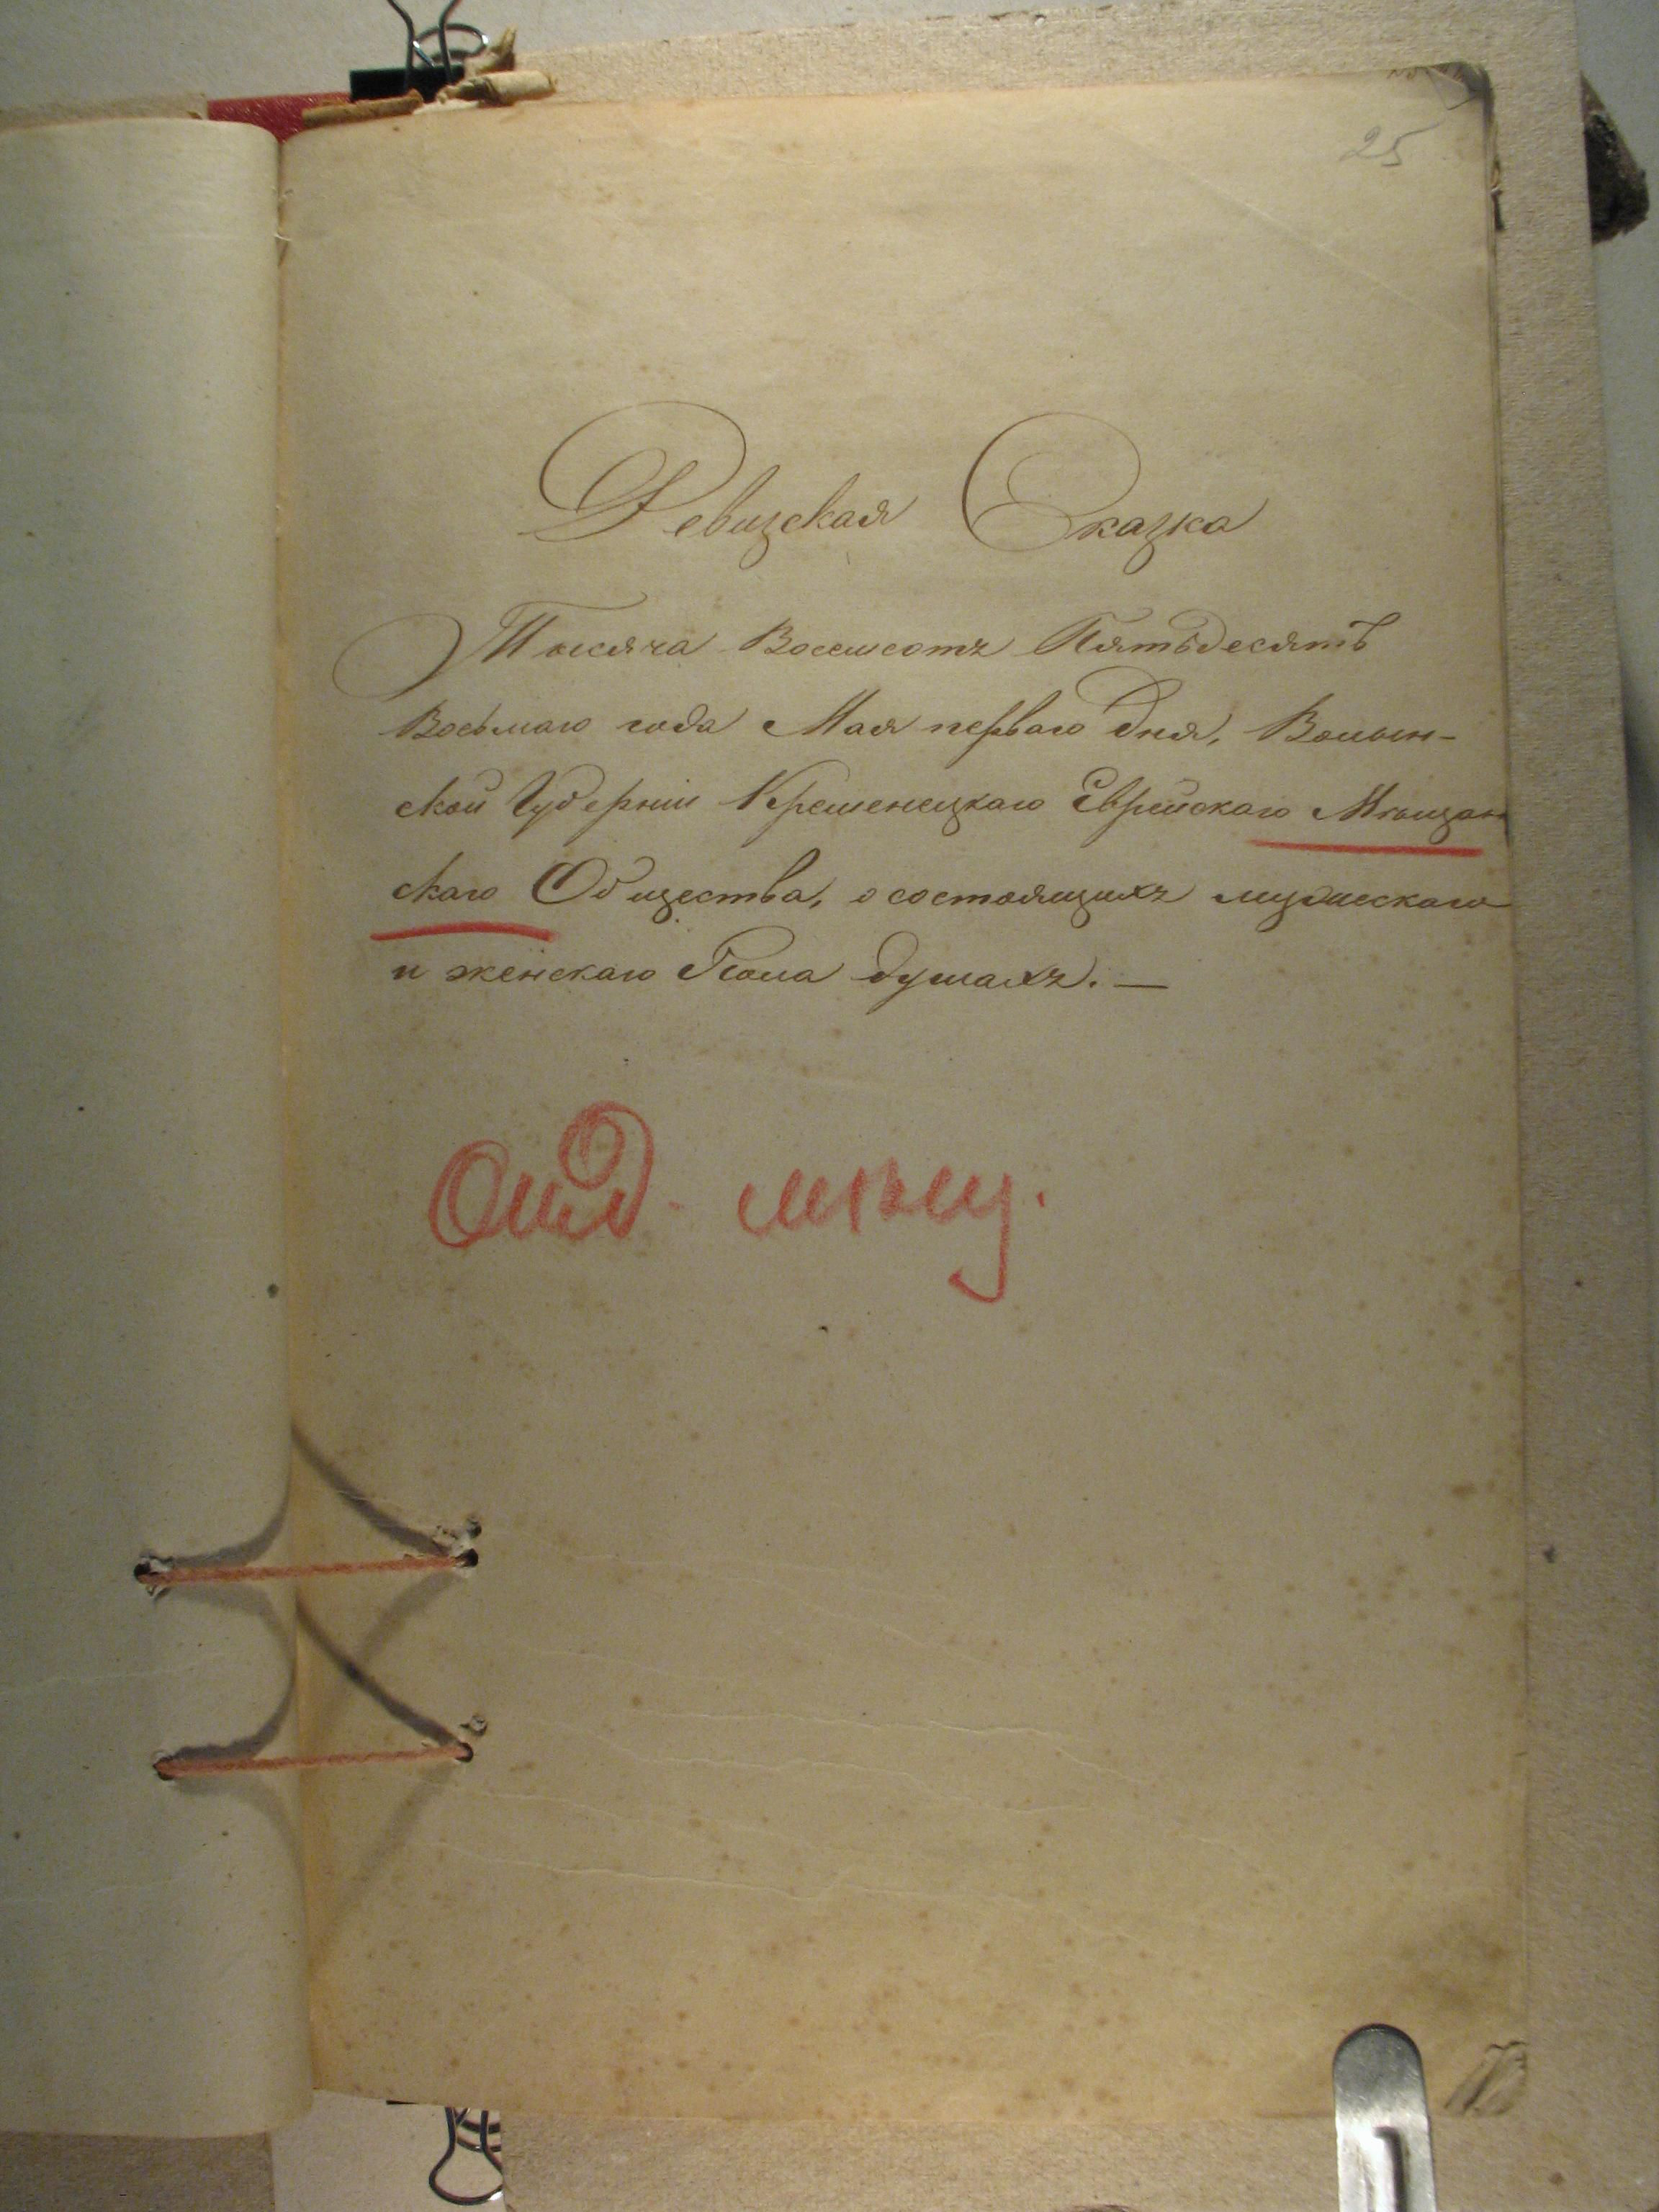 25
Ревизская Сказка
Тысяча Восемсотъ Пятьдесятъ
Восьмаго года Мая перваго дня, Волын-
ской Губерніи Кременецкаго Еврейскаго Мѣщан
скаго Общества, о состоящихъ мужескаго
и женскаго Пола душахъ. —
Отд. мѣщ.